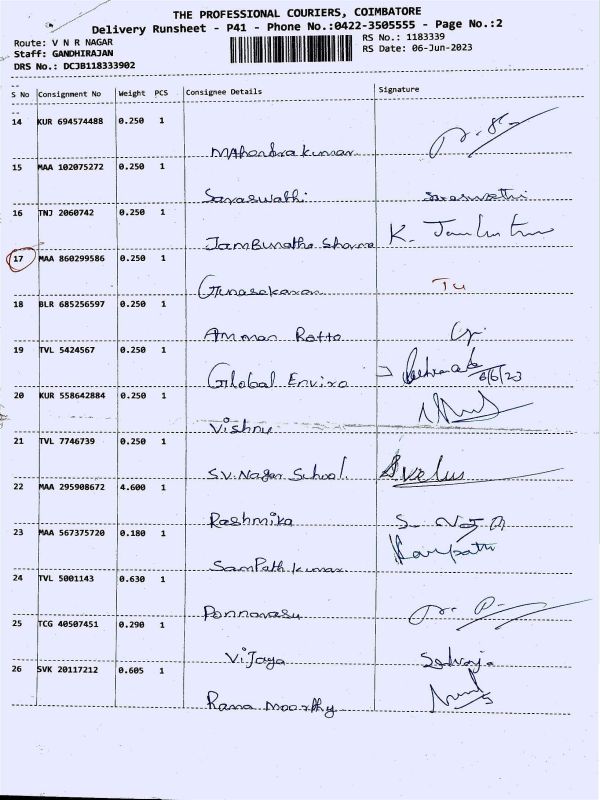 THE PROFESSIONAL COURIERS, COIMBATORE
Delivery Runsheet - P41 - Phone No.:0422-3505555 - Page No.:2
Route: V N R NAGAR
RS No.: 1183339
Staff: GANDHIRAJAN
RS Date: 06-Jun-2023
DRS No.: DCJB118333902
S No Consignment No Weight PCS Consignee Details Signature
14 KUR 694574488 0.250 1
Mahendrakumar
15 MAA 102075272 0.250 1
Saraswathi Saraswathi
16 TNJ 2060742 0.250 1
Jambunatha Sharma K.
17 MAA 860299586 0.250 1
Gunasekaran
18 BLR 685256597 0.250 1
Amman Rotto
19 TVL 5424567 0.250 1
Global Enviro 6/6/23
20 KUR 558642884 0.250 1
Vishnu
21 TVL 7746739 0.250 1
S.V. Nagar School Svelus
22 MAA 295908672 4.600 1
Rashmika
23 MAA 567375720 0.180 1
Sampath kumar
24 TVL 5001143 0.630 1
Ponnavasu
25 TCG 40507451 0.290 1
Vijaya
26 SVK 20117212 0.605 1
Rama moorthy